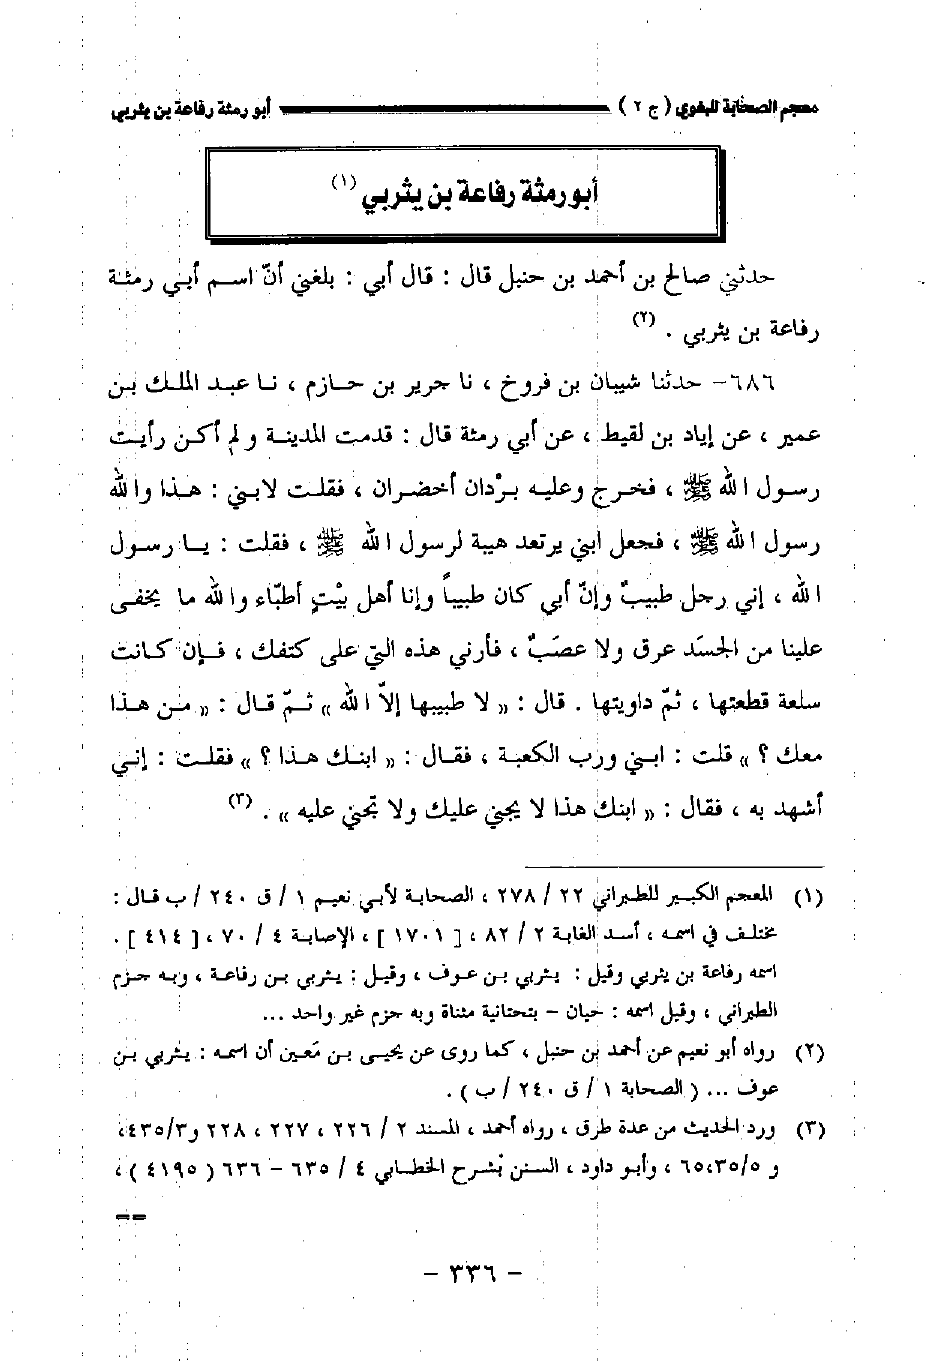 معجم الصحابة للبغوي ( ج ٢ ) أبو رمثة رفاعة بن يثربي
أبو رمثة رفاعة بن يثربي (١)
حدثني صالح بن أحمد بن حنبل قال : قال أبي : بلغني أنّ اسم أبي رمثة
رفاعة بن يثربي . (٢)
٦٨٦- حدثنا شيبان بن فروخ ، نا جرير بن حازم ، نا عبد الملك بن
عمير ، عن إياد بن لقيط ، عن أبي رمثة قال : قدمت المدينة و لم أكن رأيت
رسول الله ﷺ ، فخرج وعليه برْدان أخضران ، فقلت لابني : هذا والله
رسول الله ﷺ ، فجعل ابني يرتعد هيبة لرسول الله ﷺ ، فقلت : يا رسول
الله ، إني رجل طبيبٌ وإنّ أبي كان طبيباً وإنا أهل بيْتٍ أطبّاء والله ما يخفى
علينا من الجسَد عرق ولا عصَبٌ ، فأرني هذه التي على كتفك ، فإن كانت
سلعة قطعتها ، ثمّ داويتها . قال : « لا طبيبها إلاّ الله » ثمّ قال : « من هذا
معك ؟ » قلت : ابني ورب الكعبة ، فقال : « ابنك هذا ؟ » فقلت : إني
أشهد به ، فقال : « ابنك هذا لا يجني عليك ولا تجني عليه » . (٣)
(١) المعجم الكبير للطبراني ٢٢ / ٢٧٨ ، الصحابة لأبي نعيم ١ / ق ٢٤٠ / ب قال :
مختلف في اسمه ، أسد الغابة ٢ / ٨٢ ، [ ١٧٠١ ] ، الإصابة ٤ / ٧٠ ، [ ٤١٤ ] .
اسمه رفاعة بن يثربي وقيل : يثربي بن عوف ، وقيل : يثربي بن رفاعة ، وبه جزم
الطبراني ، وقيل اسمه : حيان – بتحتانية مثناة وبه جزم غير واحد ...
(٢) رواه أبو نعيم عن أحمد بن حنبل ، كما روى عن يحيى بن مَعين أن اسمه : يثربي بن
عوف ... ( الصحابة ١ / ق ٢٤٠ / ب ) .
(٣) ورد الحديث من عدة طرق ، رواه أحمد ، المسند ٢ / ٢٢٦ ، ٢٢٧ ، ٢٢٨ و٤٣٥/٣،
و ٦٥،٣٥/٥ ، وأبو داود ، السنن بشرح الخطابي ٤ / ٦٣٥ – ٦٣٦ ( ٤١٩٥ ) ،
==
- ٣٣٦ -